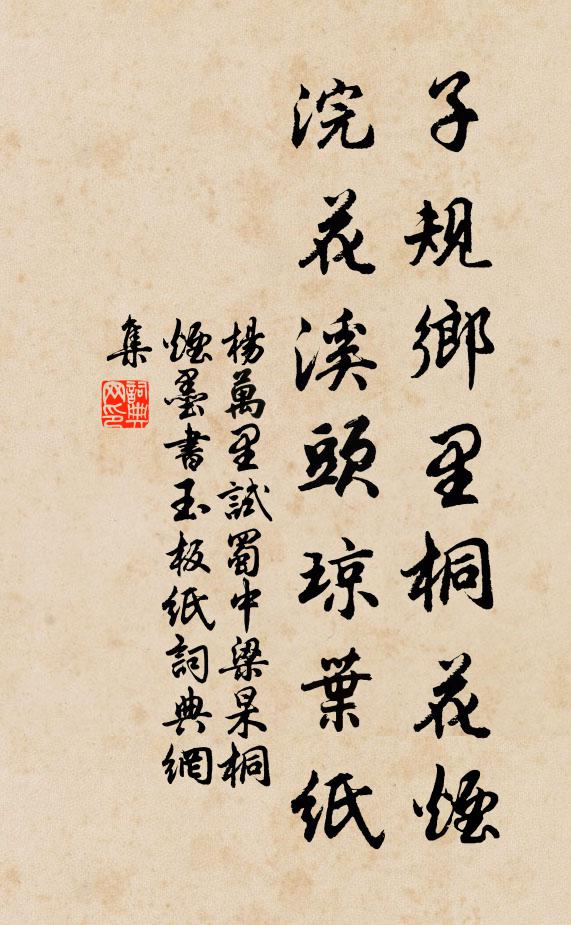 子規鄉里桐花煙
浣花溪頭琼葉紙
楊萬里試蜀中梁杲桐
煙墨書玉板紙詞典網
集
詞典
网印